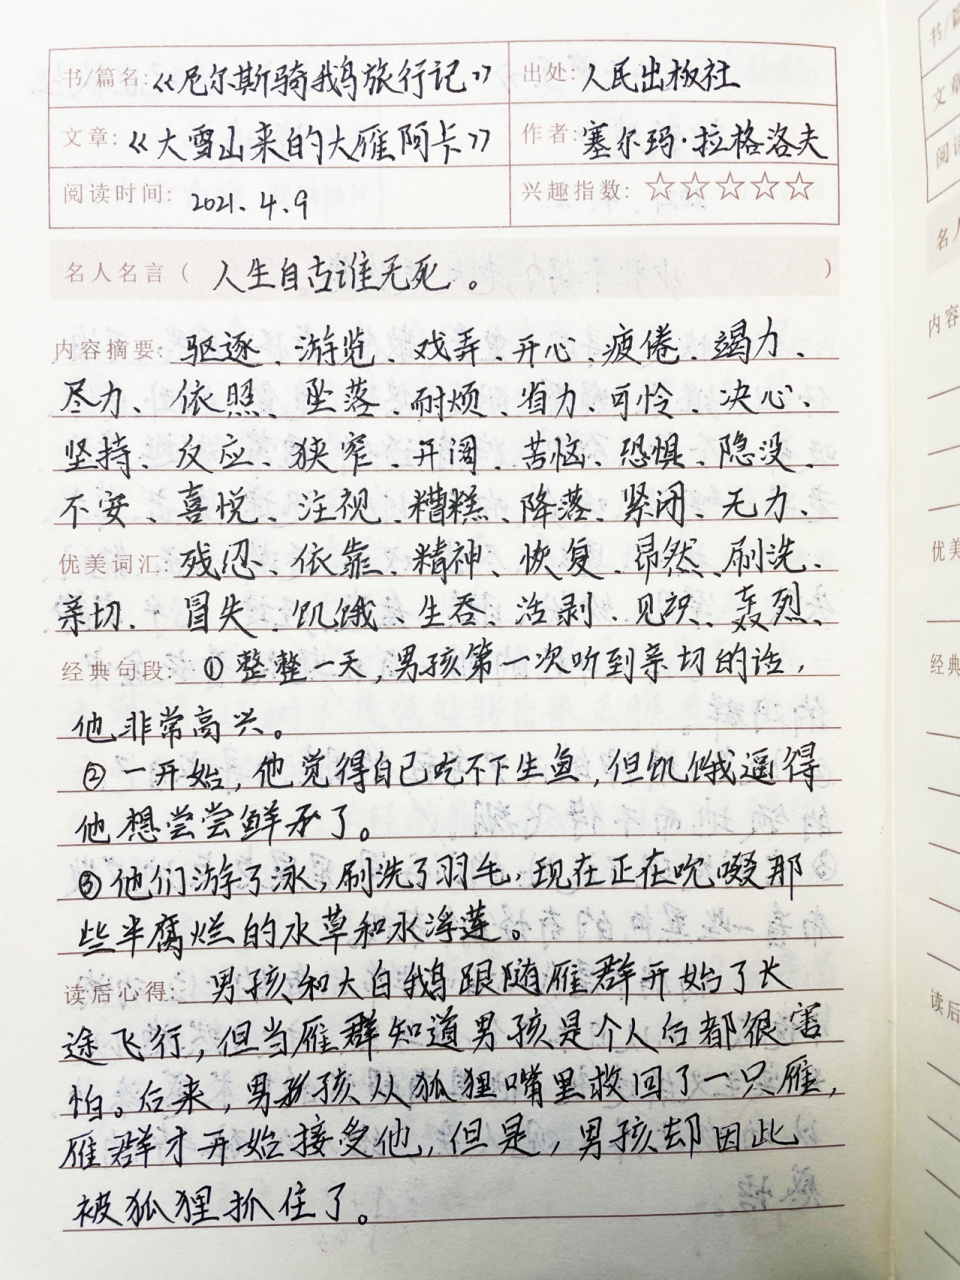 书/篇名:《尼尔斯骑鹅旅行记》 出处:人民出板社
文章:《大雪山来的大雁阿卡》 作者:塞尔玛·拉格洛夫
阅读时间:2021.4.9 兴趣指数:☆☆☆☆☆
名人名言(人生自古谁无死。)
内容摘要:驱逐、游览、戏弄、开心、疲倦、竭力、
尽力、依照、坠落、耐烦、省力、可怜、决心、
坚持、反应、狭窄、开阔、苦恼、恐惧、隐没、
不安、喜悦、注视、糟糕、降落、紧闭、无力、
优美词汇:残忍、依靠、精神、恢复、昂然、刷洗、
亲切、冒失、饥饿、生吞、活剥、见识、轰烈、
经典句段:①整整一天,男孩第一次听到亲切的话,
他非常高兴。
②一开始,他觉得自己吃不下生鱼,但饥饿逼得
他想尝尝鲜了。
③他们游了泳,刷洗了羽毛,现在正在吮啜那
些半腐烂的水草和水浮莲。
读后心得:男孩和大白鹅跟随雁群开始了长
途飞行,但当雁群知道男孩是个人后都很害
怕。后来,男孩从狐狸嘴里救回了一只雁,
雁群才开始接受他,但是,男孩却因此
被狐狸抓住了。
书/篇
文章
阅读
名人
内容
优美
经典
读后